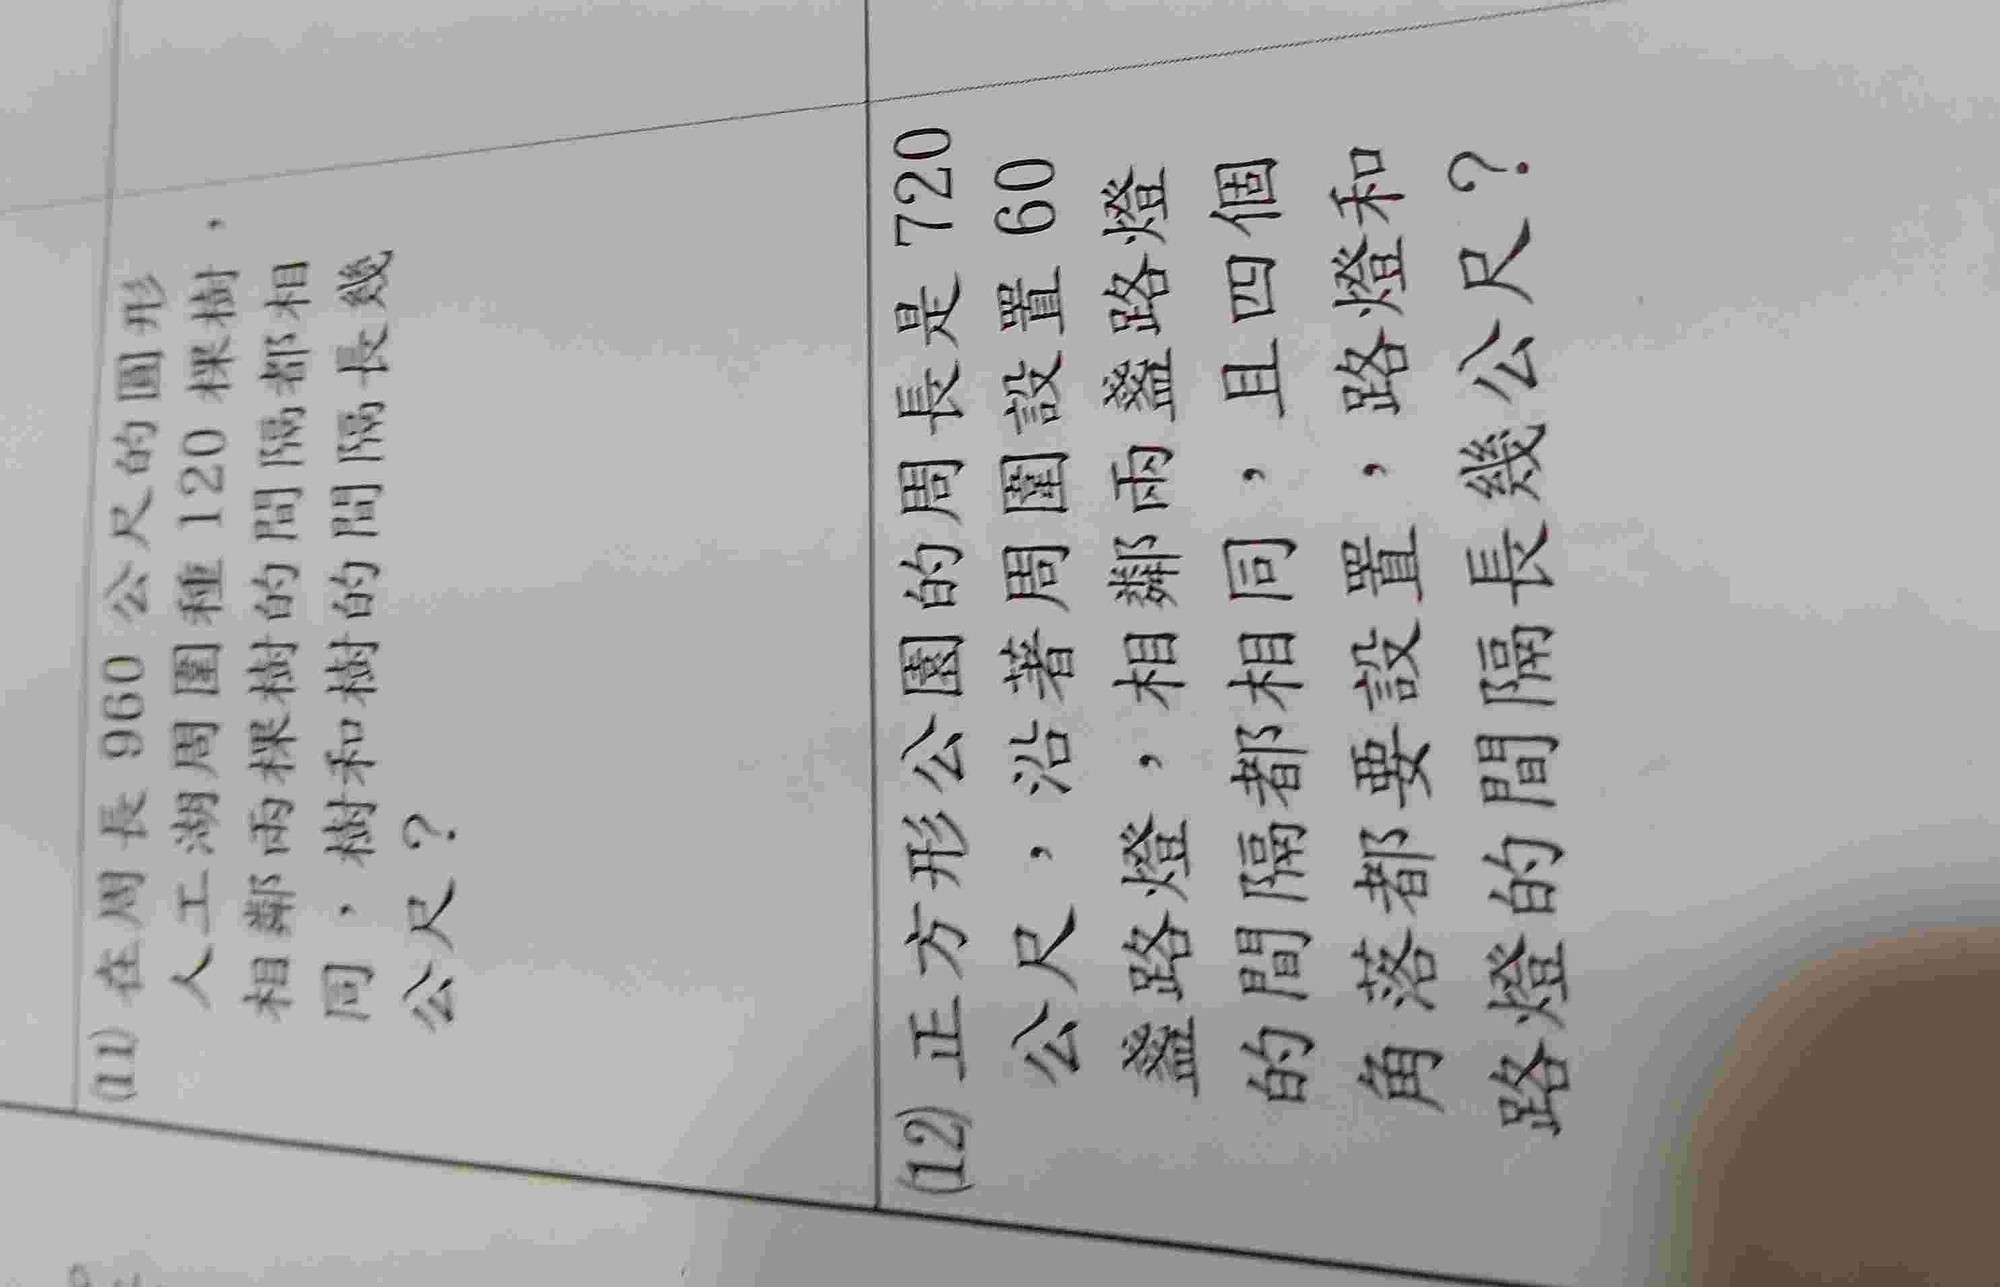 (11) 在周長 960 公尺的圓形
人工湖周圍種 120 棵樹，
相鄰兩棵樹的間隔都相
同，樹和樹的間隔長幾
公尺？
(12) 正方形公園的周長是 720
公尺，沿著周圍設置 60
盞路燈，相鄰兩盞路燈
的間隔都相同，且四個
角落都要設置，路燈和
路燈的間隔長幾公尺？